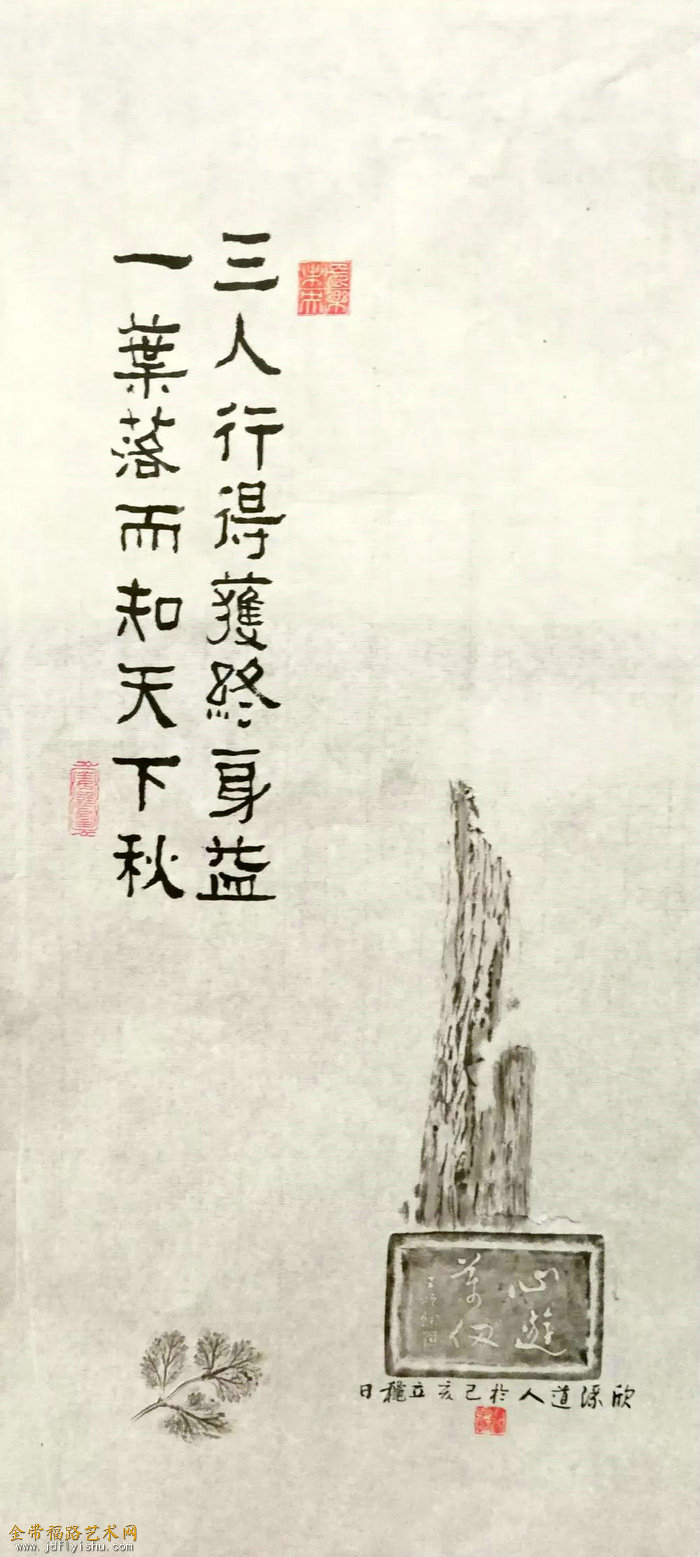 長樂未央
三人行得獲終身益
一葉落而知天下秋
心遊
萬仞
欣深道人於己亥立穐日
金带福路艺术网
www.jdflyishu.com